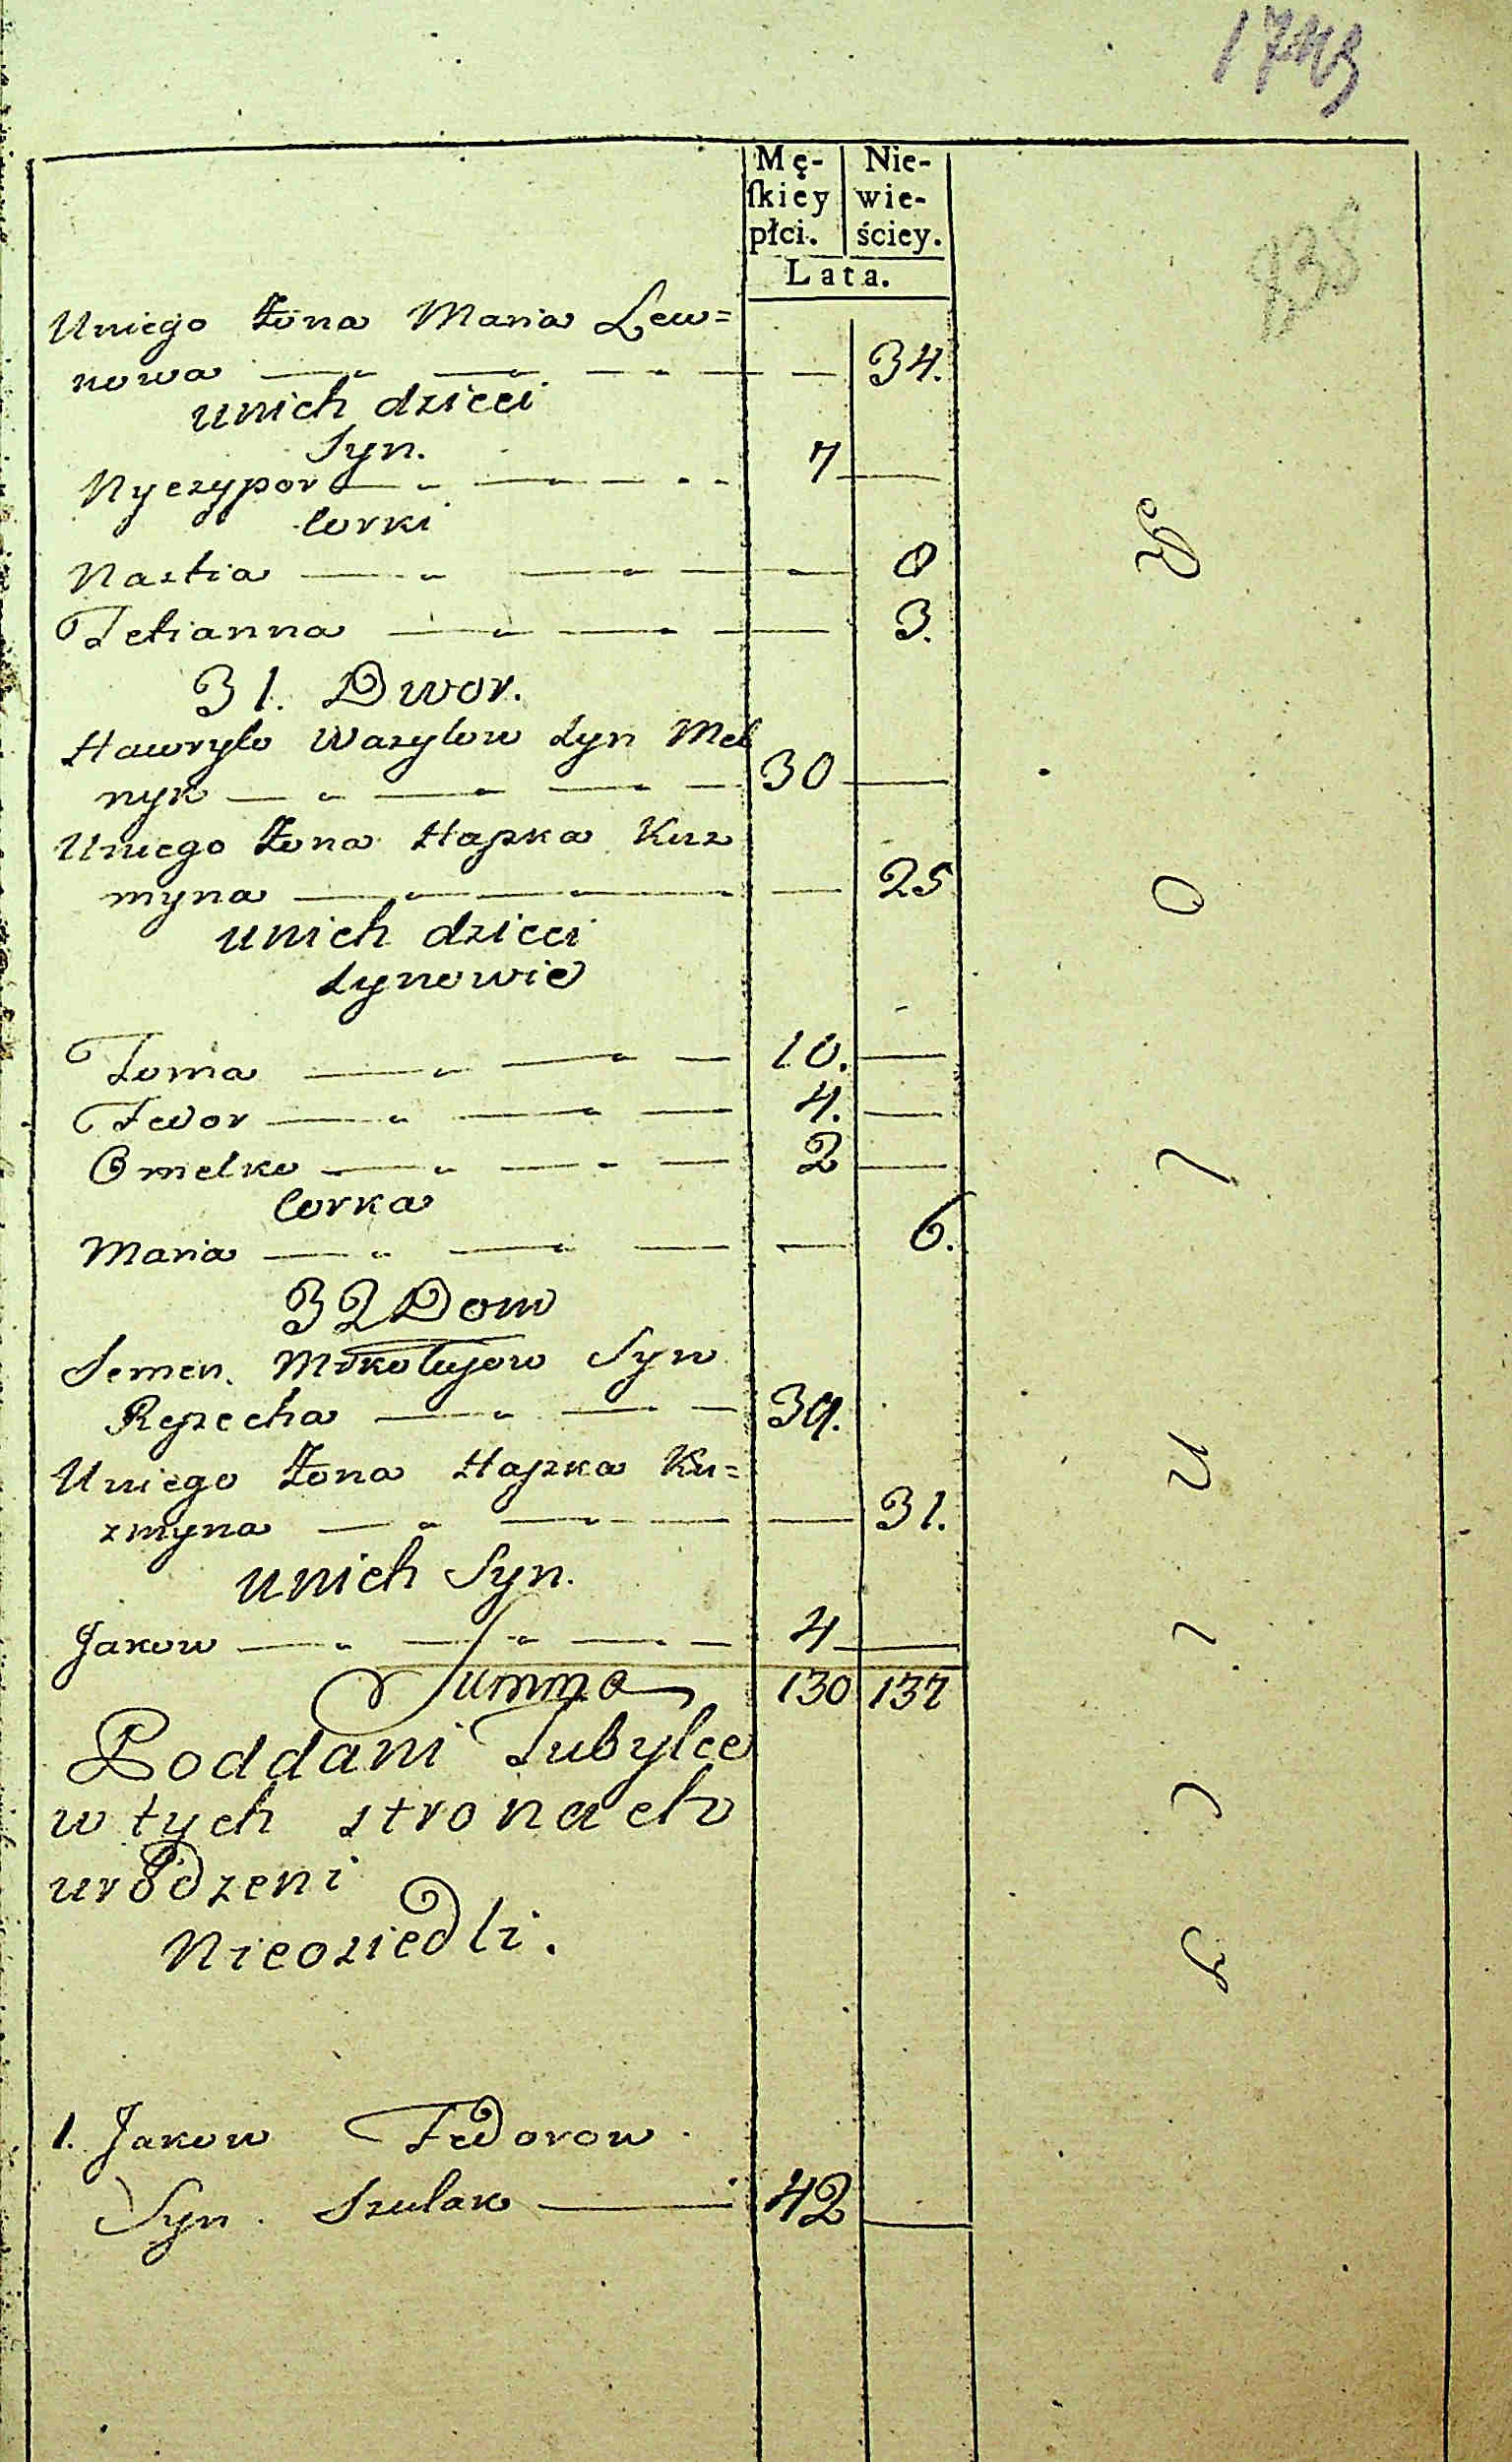 Mę-
skiey
płci.
Nie-
wie-
ściey.
Lata.
Uniego Żona Maria Lew=
kowa 34.
unich dzieci
Syn.
Nyczypor 7
Corki
Nastia 8
Tetianna 3.
31. Dwor.
Hawryło Wasylow Syn Mel
nyk 30
Uniego Żona Hapka Kuz
myna 25
unich dzieci
Synowie
Toma 10.
Fedor 4.
Omelko 2
Corka
Maria 6.
32 Dom
Semen Mikołajow Syn
Repecha 39.
Uniego Żona Hapka Ku=
zmyna 31.
unich Syn.
Jakow 4
Summa 130 137
Poddani Tubylce
w tych stronach
urodzeni
Nieosiedli.
1. Jakow Fedorow
Syn Szulak 42